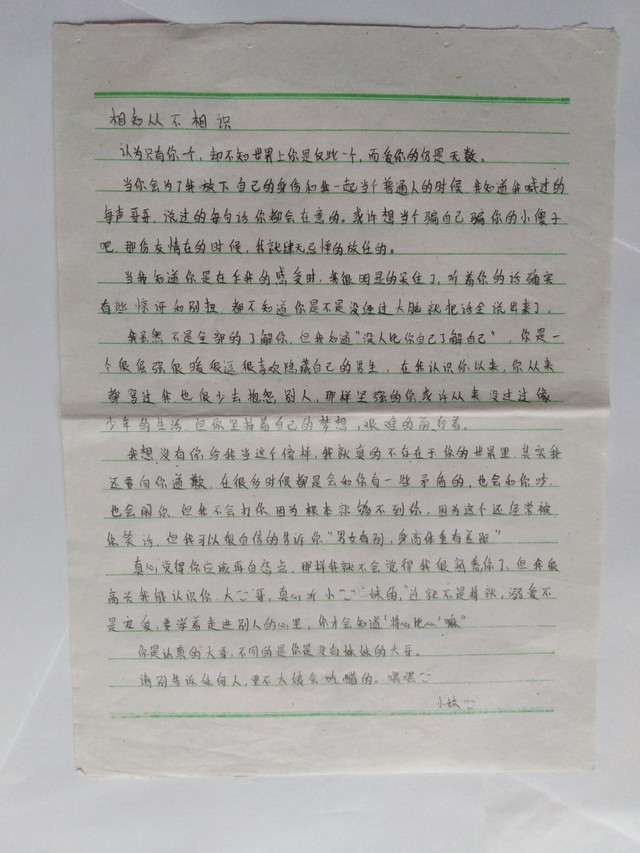 相知从不相识
认为只有你一个，却不知世界上你是仅此一个，而爱你的仍是无数。
当你会为了我放下自己的身份和我一起当个普通人的时候，我知道我喊过的
每声哥哥，说过的每句话你都会在意的。或许想当个骗自己骗你的小傻子
吧，那份友情在的时候，我就肆无忌惮的放任的。
当我知道你是在乎我的感受时，我很明显的呆住了，听着你的话确实
有些惊讶和别扭，都不知道你是不是没经过大脑就把话全说出来了。
我虽然不是全部的了解你，但我知道"没人比你自己了解自己"，你是一
个很倔强很暖很逗很喜欢隐藏自己的男生，在我认识你以来，你从来
都骂过我也很少去抱怨别人，那样坚强的你或许从来没过过像
少年的生活，但你坚持着自己的梦想，艰难的前行着。
我想没有你给我当这个榜样，我就真的不存在于你的世界里，其实我
还要向你道歉，在很多时候都是会和你有一些矛盾的，也会和你吵，
也会闹你，但我不会打你，因为根本就够不到你，因为这个还经常被
你笑话，但我可以很自信的告诉你"男女有别，身高体重有差距"
真心觉得你应该再自恋点，那样我就不会觉得我很熟悉你了，但我很
高兴我能认识你，大二哥，真心对小二妹的，迁就不是将就，溺爱不
是宠爱，要学着走进别人的心里，你才会知道"将心比心嘛"
你是认真的大哥，不同的是你是没有妹妹的大哥。
请别告诉任何人，要不大婶会吃醋的。嘿嘿
小妹